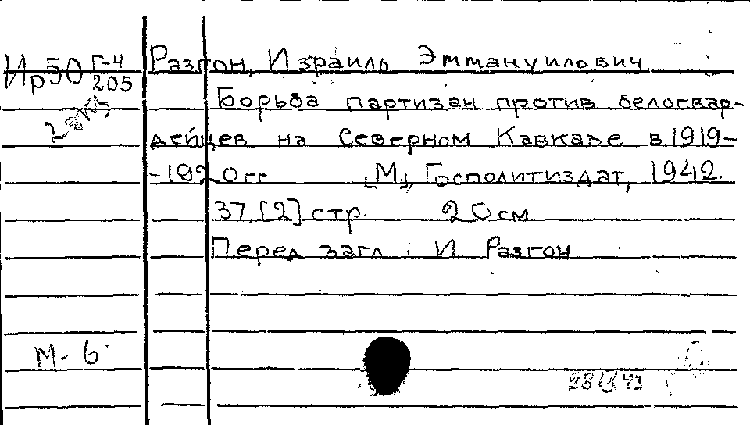 Ир50 Г-4/205
Разгон, Израиль Эммануилович
2 экз
Борьба партизан против белогвар-
дейцев на Северном Кавказе в 1919-
-1920гг [М], Госполитиздат, 1942.
37 [2] стр. 20 см
Перед загл: И Разгон
М-6